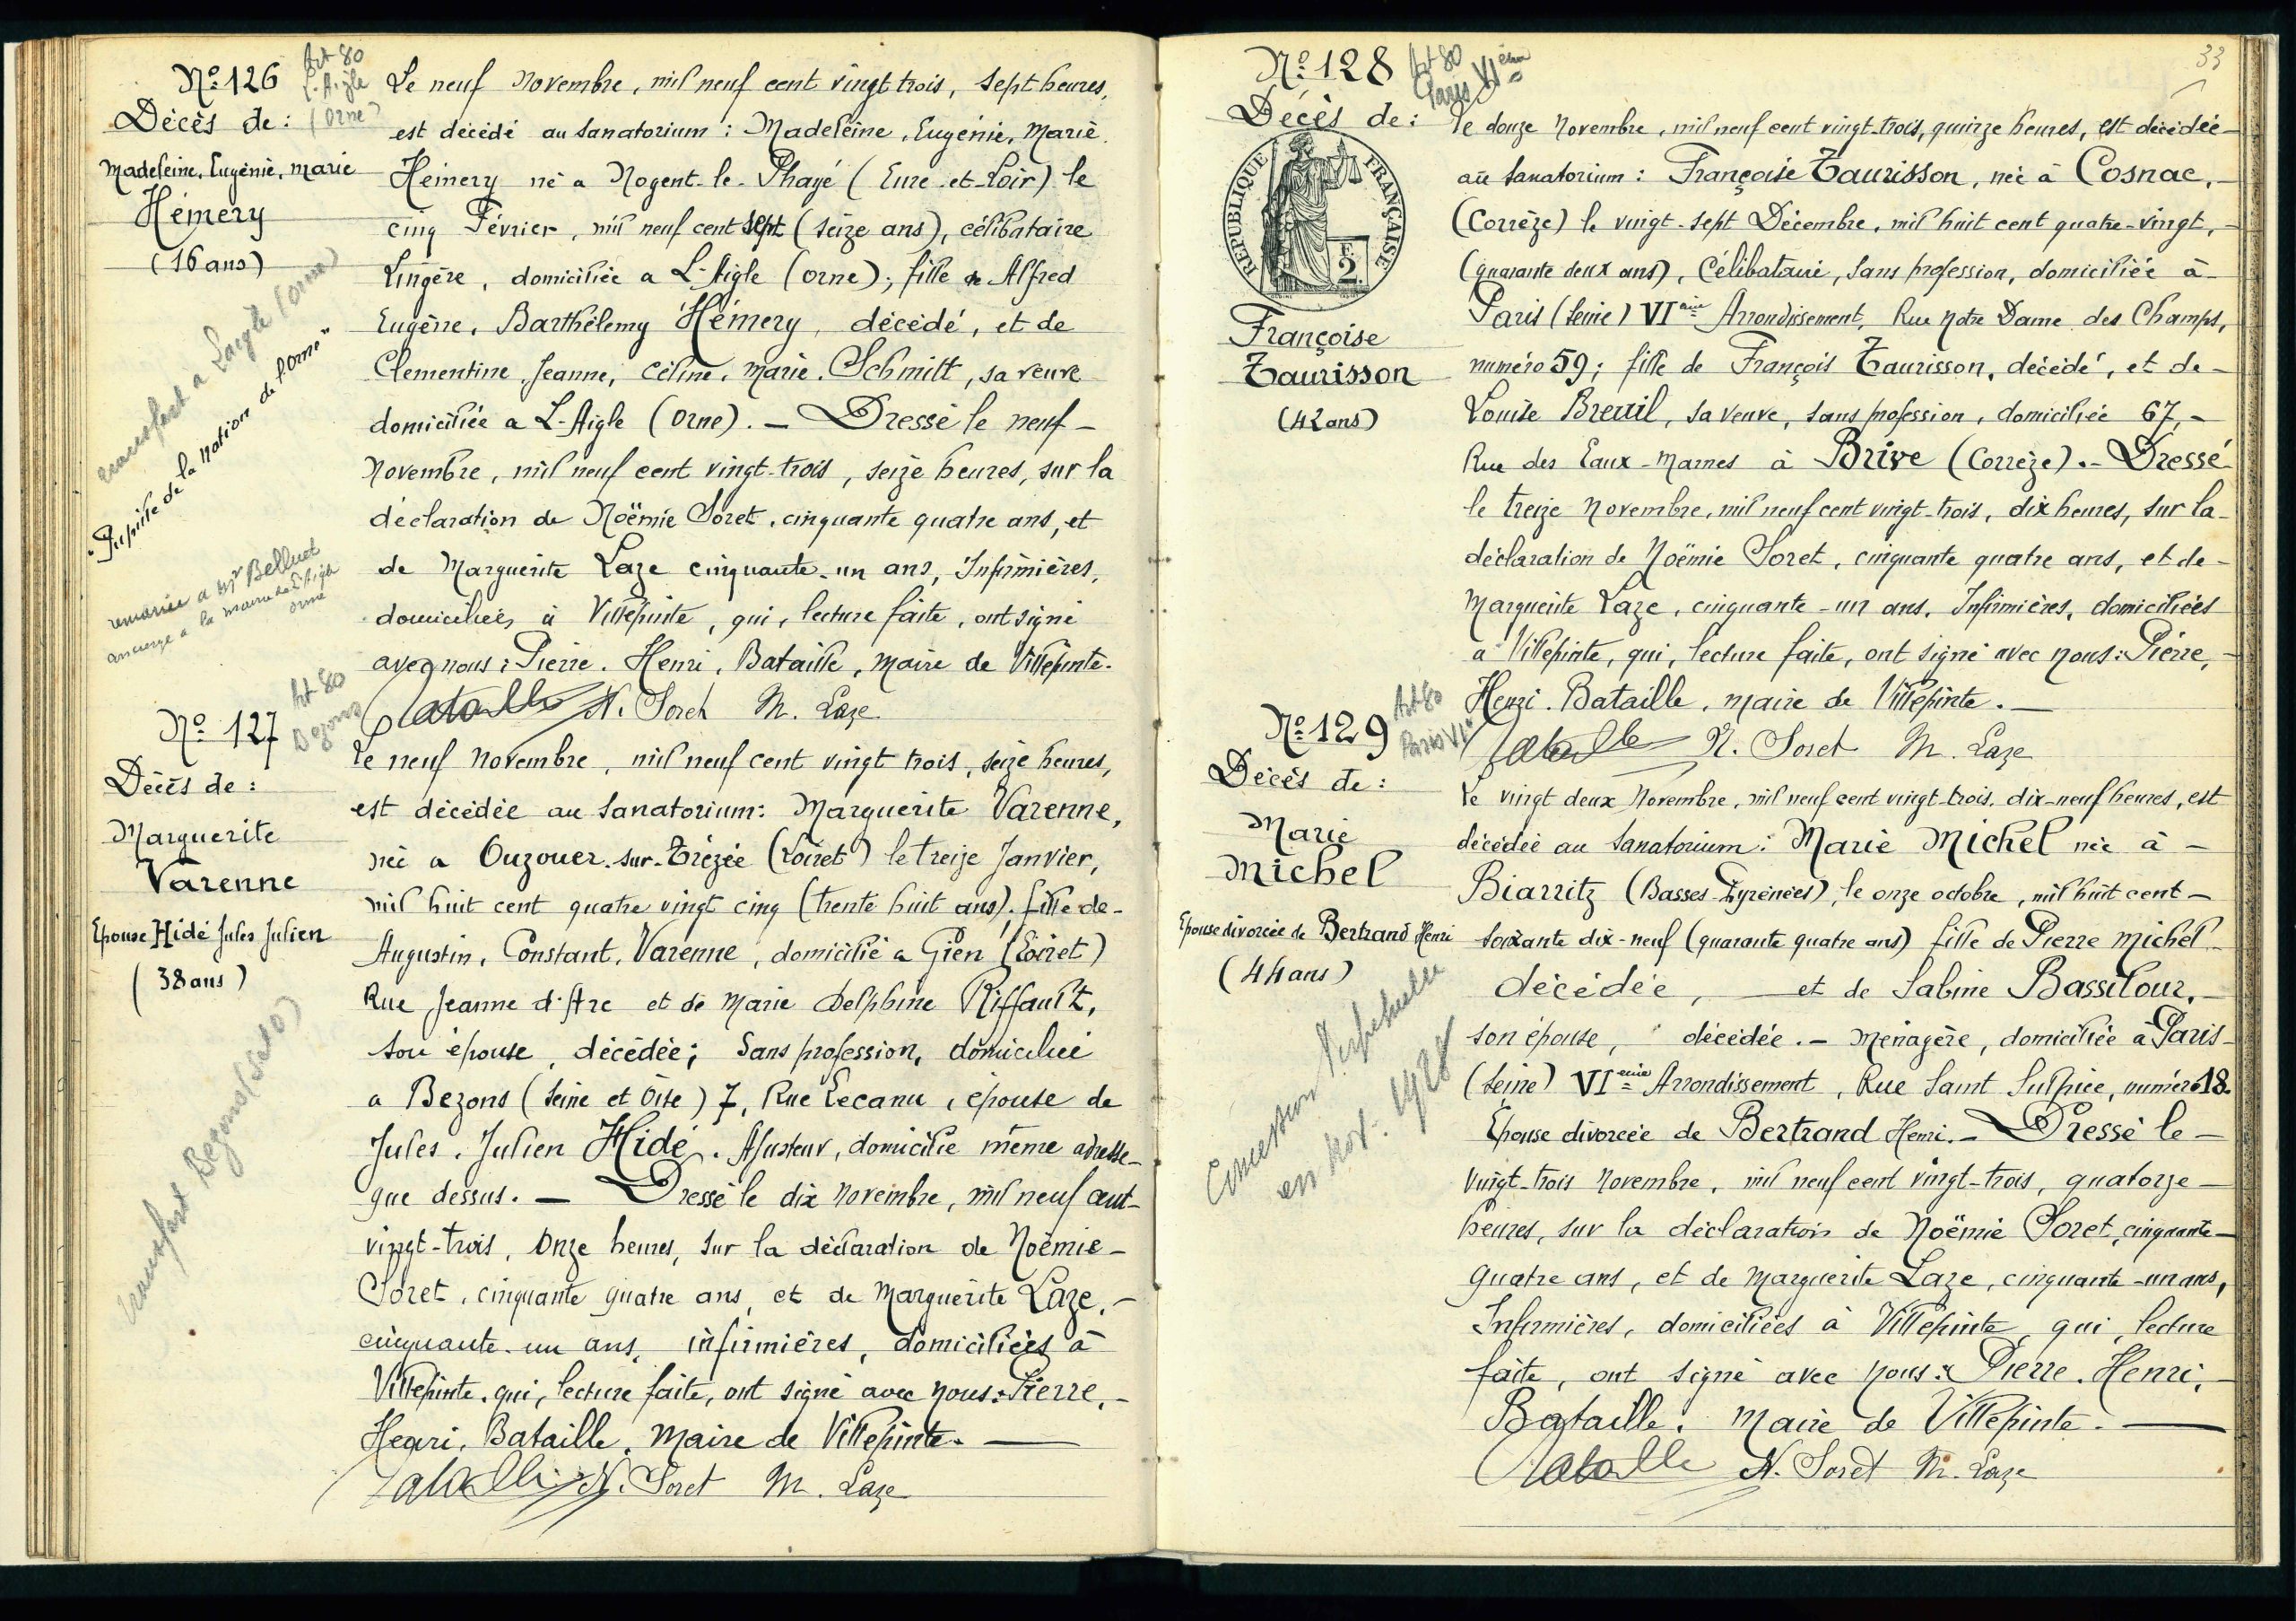 Nº 126
Art 80
L'Aigle
(Orne)
Décès de :
Madeleine, Eugénie, Marie
Hémery
(16 ans)
transfert a Laigle (orne)
"Pupille de la Nation de l'Orne"
remariée a Mr Belluet
concierge a la mairie de L'Aigle
orne
Le neuf Novembre, mil neuf cent vingt trois, sept heures,
est décédé au Sanatorium : Madeleine, Eugénie, Marie
Hémery né a Nogent-le-Phayé (Eure-et-Loir) le
cinq Février, mil neuf cent sept (seize ans), célibataire
Lingère, domiciliée a L'Aigle (Orne) ; fille de Alfred
Eugène, Barthélemy Hémery, décédé, et de
Clementine, Jeanne, Céline, Marie. Schmitt, sa veuve
domiciliée a L'Aigle (Orne). — Dressé le neuf –
Novembre, mil neuf cent vingt-trois, seize heures, sur la
déclaration de Noëmie Soret, cinquante quatre ans, et
de Marguerite Laze cinquante-un ans, Infirmières,
domiciliées à Villepinte, qui, lecture faite, ont signé
avec nous : Pierre. Henri, Bataille, Maire de Villepinte.
Bataille N. Soret M. Laze
Nº 127
Art 80
Bezons
Décès de :
Marguerite
Varenne
Epouse Hidé Jules Julien
(38 ans)
transfert Bezons (S et O)
Le neuf Novembre, mil neuf cent vingt trois, seize heures,
est décédée au Sanatorium : Marguerite Varenne,
née a Ouzouer-sur-Trézée (Loiret) le treize Janvier,
mil huit cent quatre vingt cinq (trente huit ans), fille de –
Augustin, Constant, Varenne, domicilié a Gien (Loiret)
Rue Jeanne d'Arc et de Marie Delphine Riffault,
son épouse, décédée ; Sans profession, domiciliée
a Bezons (Seine et Oise) 7, Rue Lecanu, épouse de
Jules, Julien Hidé. Ajusteur, domicilié même adresse –
que dessus. — Dressé le dix Novembre, mil neuf cent –
vingt-trois, Onze heures, sur la déclaration de Noëmie –
Soret, cinquante quatre ans, et de Marguerite Laze, –
cinquante-un ans, infirmières, domiciliées à
Villepinte, qui, lecture faite, ont signé avec nous : Pierre, –
Henri, Bataille, Maire de Villepinte. —
Bataille N. Soret M. Laze
33
Nº 128
Art 80
Paris VIème
Décès de :
REPUBLIQUE FRANÇAISE
F.
2.
Françoise
Taurisson
(42 ans)
Le douze Novembre, mil neuf cent vingt-trois, quinze heures, est décédée –
au Sanatorium : Françoise Taurisson, née à Cosnac, –
(Corrèze) le vingt-sept Décembre, mil huit cent quatre-vingt, –
(quarante deux ans), Célibataire, sans profession, domiciliée à –
Paris (Seine) VIème Arrondissement, Rue Notre Dame des Champs,
numéro 59 ; fille de François Taurisson, décédé, et de –
Louise Breuil, sa veuve, sans profession, domiciliée 67, –
Rue des Eaux-Mames à Brive (Corrèze). – Dressé
le treize Novembre, mil neuf cent vingt-trois, dix heures, sur la –
déclaration de Noëmie Soret, cinquante quatre ans, et de –
Marguerite Laze, cinquante-un ans, Infirmières, domiciliées
à Villepinte, qui, lecture faite, ont signé avec nous : Pierre, –
Henri. Bataille, maire de Villepinte. —
Bataille N. Soret M. Laze
Nº 129
Art 80
Paris VIe
Décès de :
Marie
Michel
Epouse divorcée de Bertrand Henri
(44 ans)
Concession Perpétuelle
en Nov. 1928
Le vingt deux Novembre, mil neuf cent vingt-trois, dix-neuf heures, est
décédée au Sanatorium : Marie Michel née à –
Biarritz (Basses-Pyrénées), le onze octobre, mil huit cent –
soixante dix-neuf (quarante quatre ans) fille de Pierre Michel
décédée, — et de Sabine Bassilour, –
son épouse, décédée. – Ménagère, domiciliée à Paris –
(Seine) VIème Arrondissement, Rue Saint Sulpice, numéro 18.
Epouse divorcée de Bertrand Henri. – Dressé le –
vingt-trois Novembre, mil neuf cent vingt-trois, quatorze –
heures, sur la déclaration de Noëmie Soret, cinquante –
quatre ans, et de Marguerite Laze, cinquante-un ans,
Infirmières, domiciliées à Villepinte, qui, lecture
faite, ont signé avec nous : Pierre. Henri, –
Bataille. Maire de Villepinte. —
Bataille N. Soret M. Laze